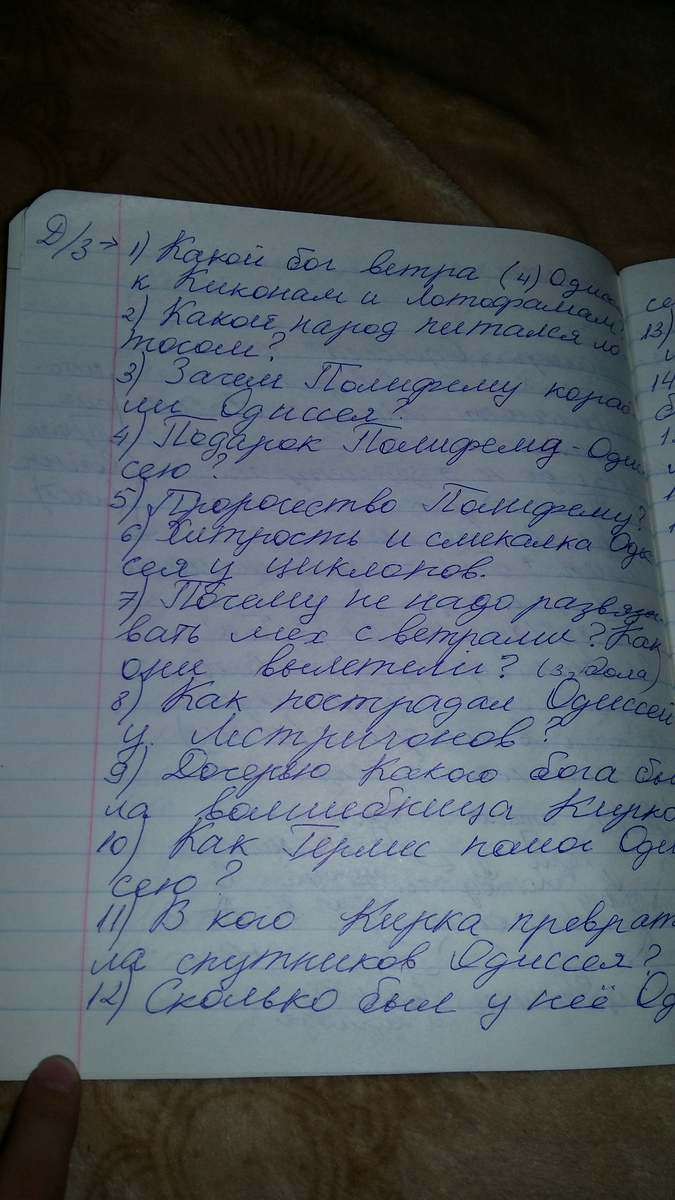 Д/з→ 1) Какой бог ветра (4) Одисс
к Киконам и лотофагам?
2) Какой народ питался ло-
тосом?
3) Зачем Полифему кораб-
ли Одиссея?
4) Подарок Полифема - Одис
сею?
5) Пророчество Полифему?
6) Хитрость и смекалка Оди
сея у циклопов.
7) Почему не надо развязы-
вать мех с ветрами? Как
они вылетели? (3. Эола)
8) Как пострадал Одиссей
у Лестригонов?
9) Дочерью какого бога бы
ла волшебница Кирка
10) Как Гермес помог Оди
сею?
11) В кого Кирка преврат
ла спутников Одиссея?
12) Сколько был у неё Од
се
13)
14